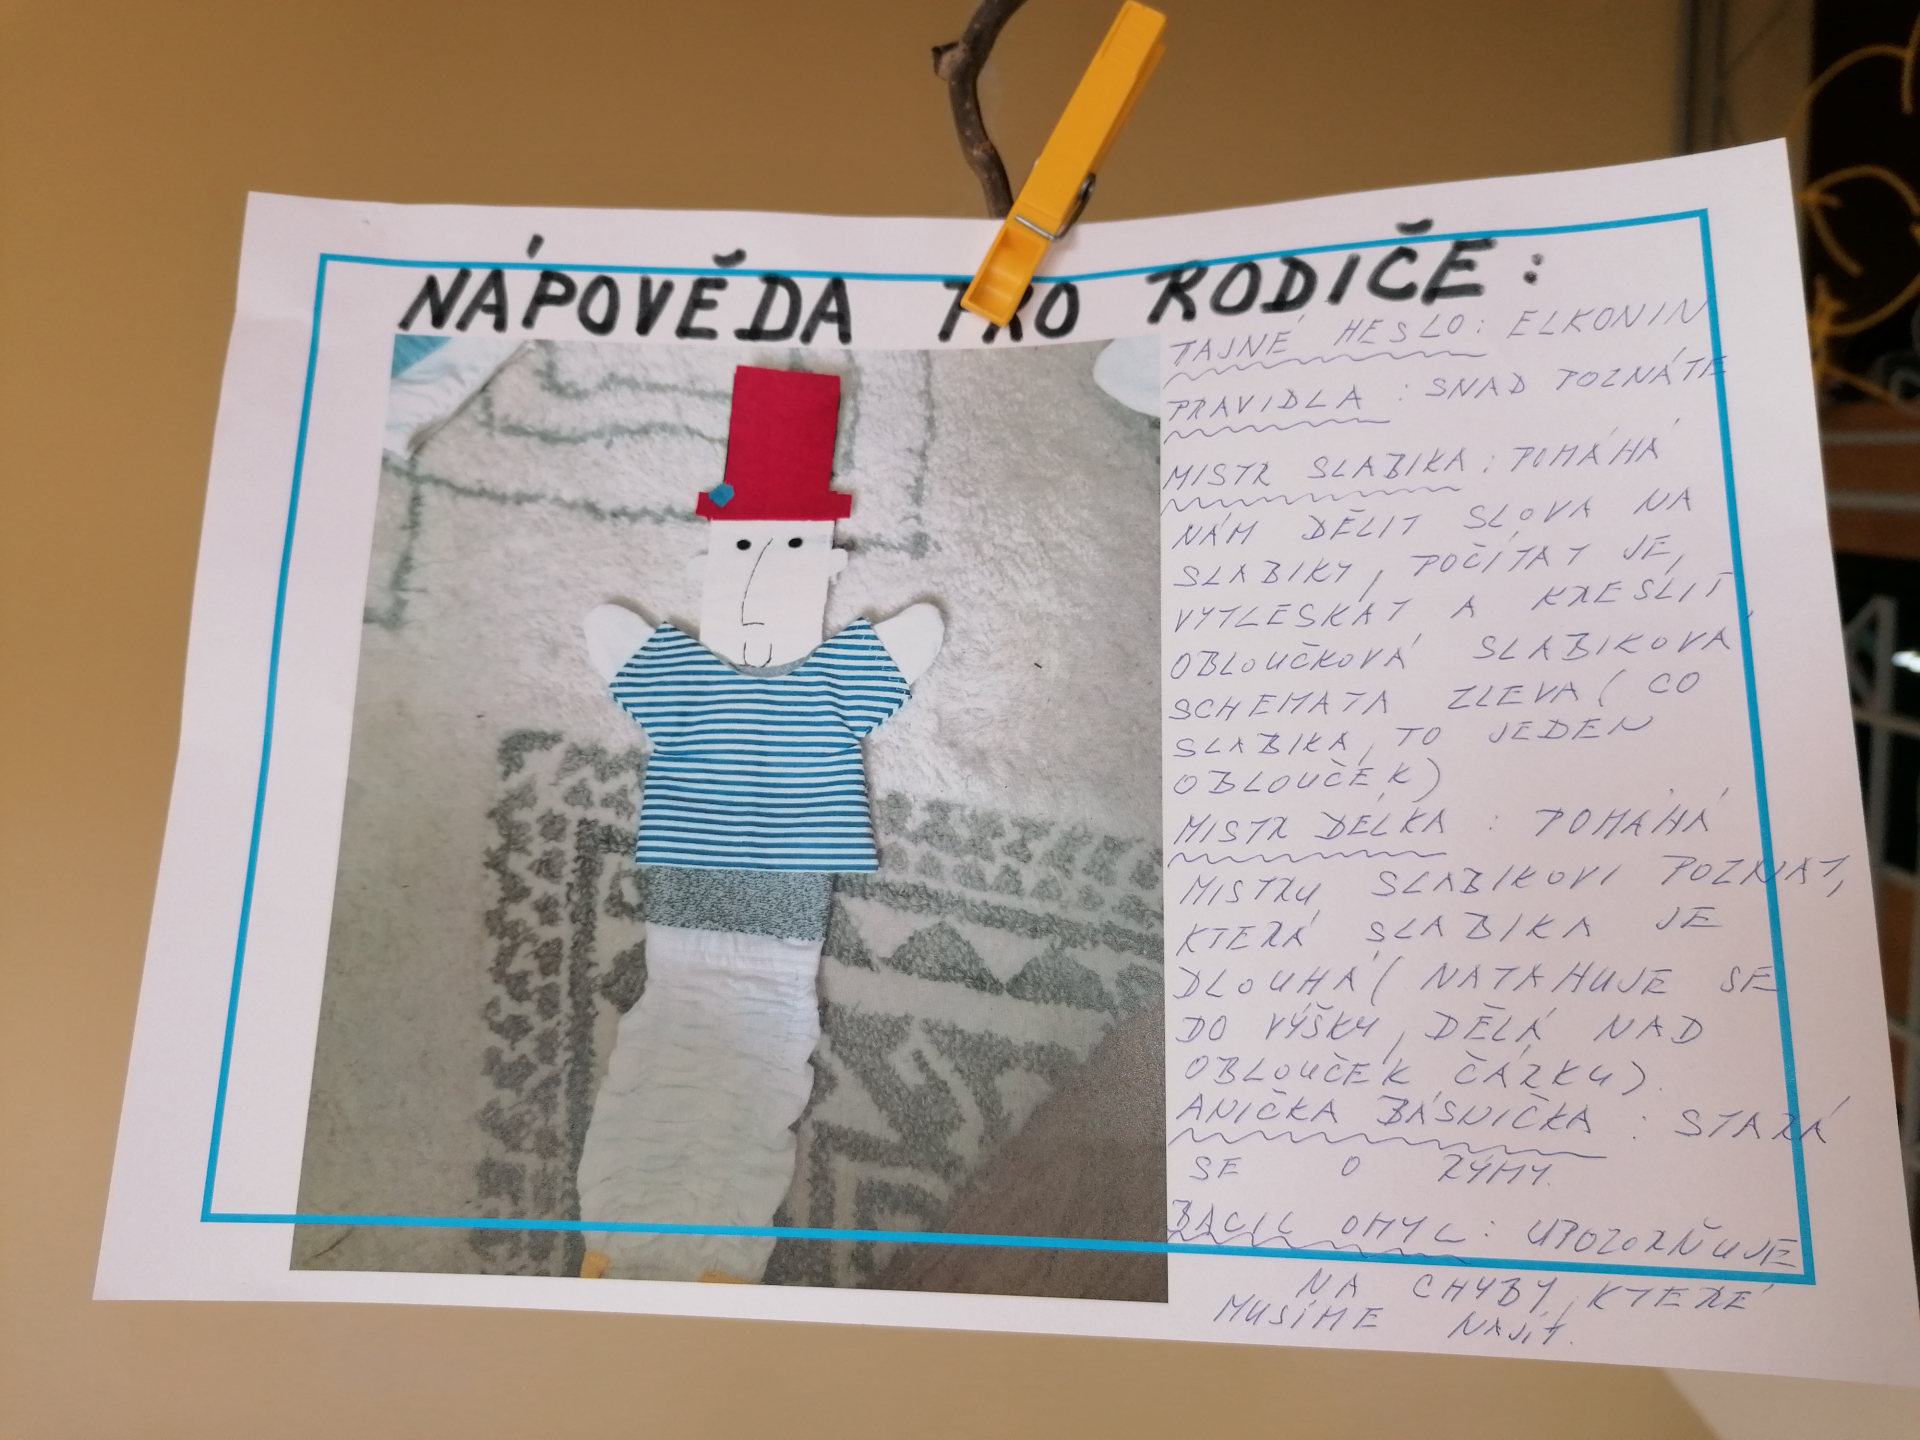 NÁPOVĚDA PRO RODIČE:
TAJNÉ HESLO: ELKONIN
PRAVIDLA : SNAD POZNÁTE
MISTR SLABIKA : POMÁHÁ
NÁM DĚLIT SLOVA NA
SLABIKY, POČÍTAT JE,
VYTLESKAT A KRESLIT
OBLOUČKOVÁ SLABIKOVÁ
SCHEMATA ZLEVA ( CO
SLABIKA, TO JEDEN
OBLOUČEK)
MISTR DÉLKA : POMÁHÁ
MISTRU SLABIKOVI POZNAT,
KTERÁ SLABIKA JE
DLOUHÁ ( NATAHUJE SE
DO VÝŠKY, DĚLÁ NAD
OBLOUČEK ČÁRKU).
ANIČKA BÁSNIČKA : STARÁ
SE O RÝMY.
BACIL OMYL : UPOZORŇUJE
NA CHYBY, KTERÉ
MUSÍME NAJÍT.